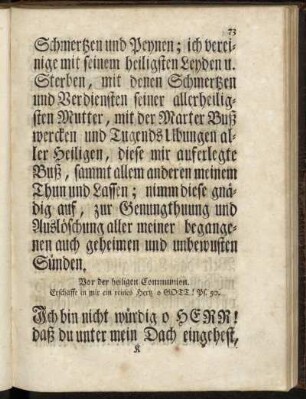 73
Schmertzen und Peynen; ich verei-
nige mit seinem heiligsten Leyden u.
Sterben, mit denen Schmertzen
und Verdiensten seiner allerheilig-
sten Mutter, mit der Marter Buß
wercken und Tugends Ubungen al-
ler Heiligen, diese mir auferlegte
Buß, sammt allem anderen meinem
Thun und Lassen; nimm diese gnä-
dig auf, zur Genungthuung und
Auslöschung aller meiner begange-
nen auch geheimen und unbewusten
Sünden.
Vor der heiligen Communion.
Erschaffe in mir ein reines Hertz o GOTT! Ps. 50.
Ich bin nicht würdig o HERR!
daß du unter mein Dach eingehest,
K